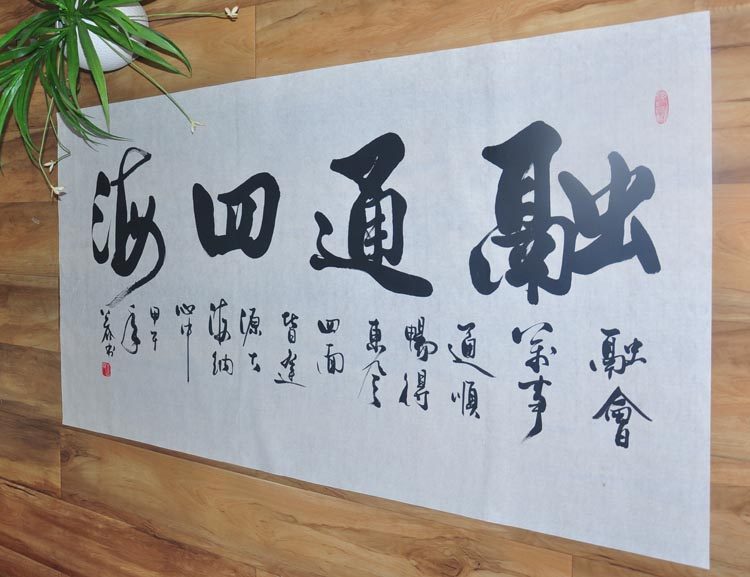 融通四海
融會
萬事
通順
暢得
東風
四面
皆逢
源大
海納
心中
甲午
年